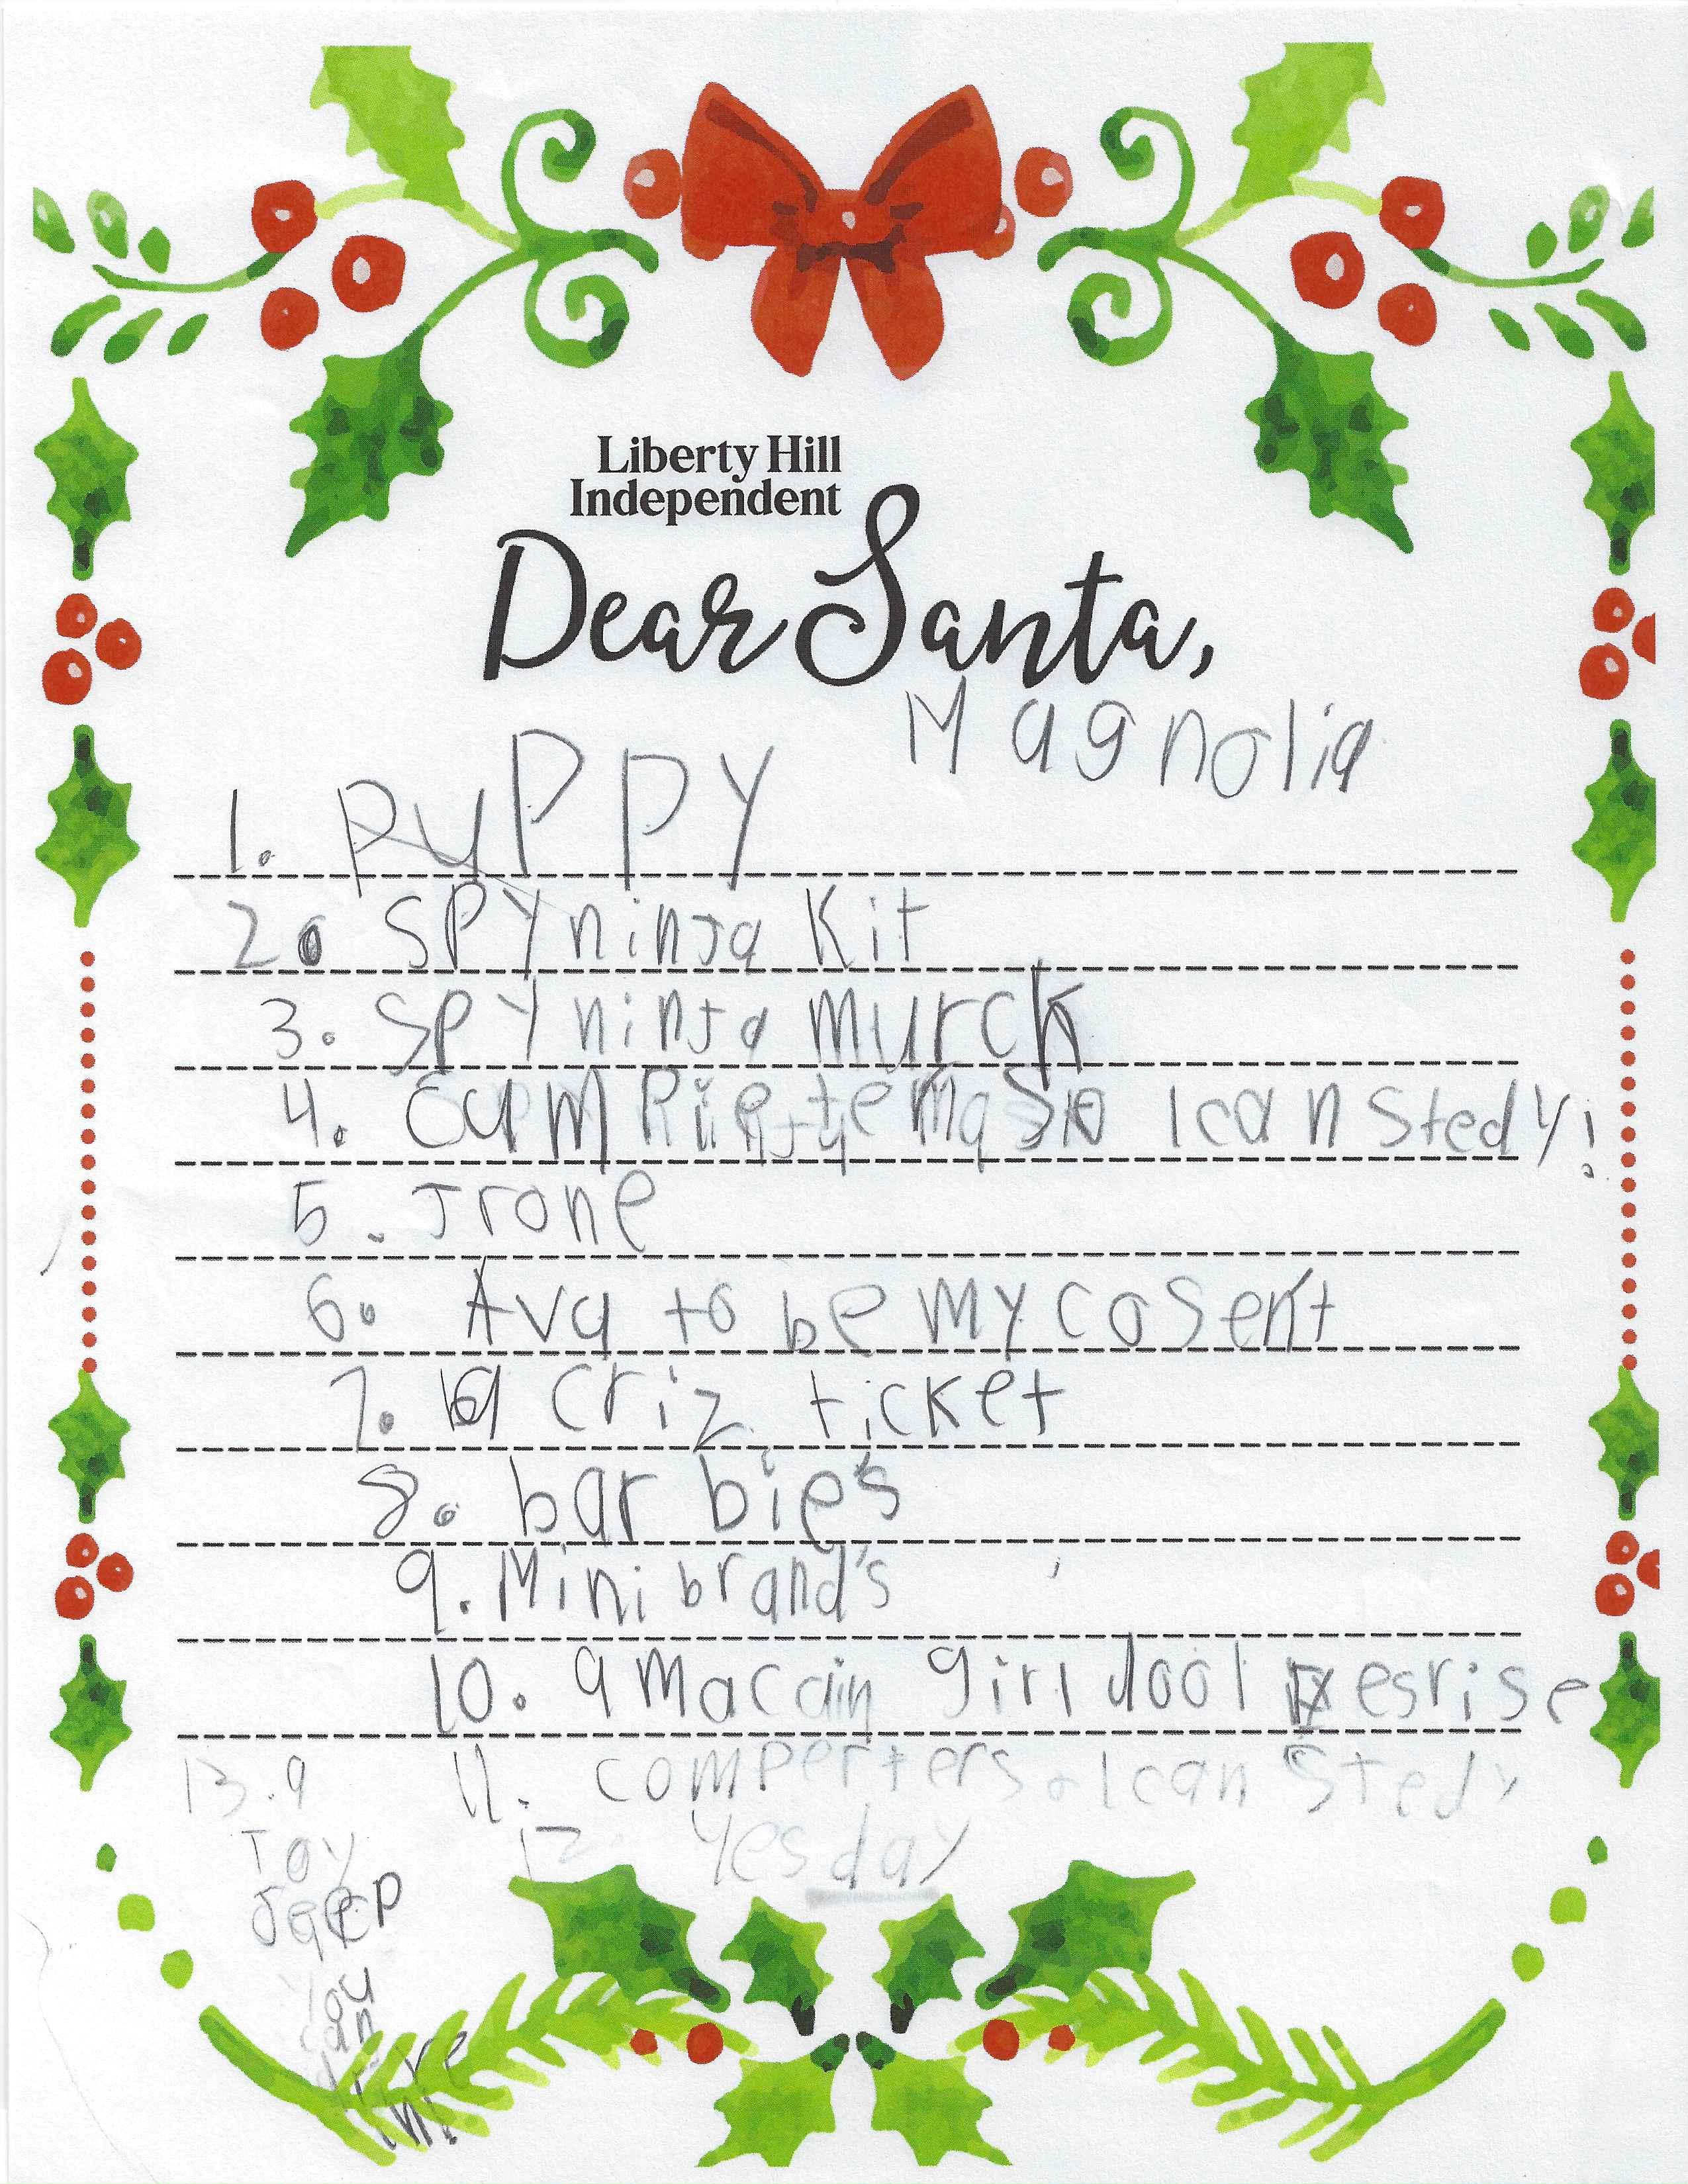 Liberty Hill
Independent
Dear Santa,
Magnolia
1. PuPPY
2. SPY ninja Kit
3. SPY ninja murck
4. I can Stedy!
5. Jrone
6. Ava to be my cosent
7. a criz ticket
8. barbie's
9. Mini brand's
10. a maccain girl dool esrise
11. comperter so I can Stedy
12. Yes day
13. a
Toy
Jeep
You
can
drive
in